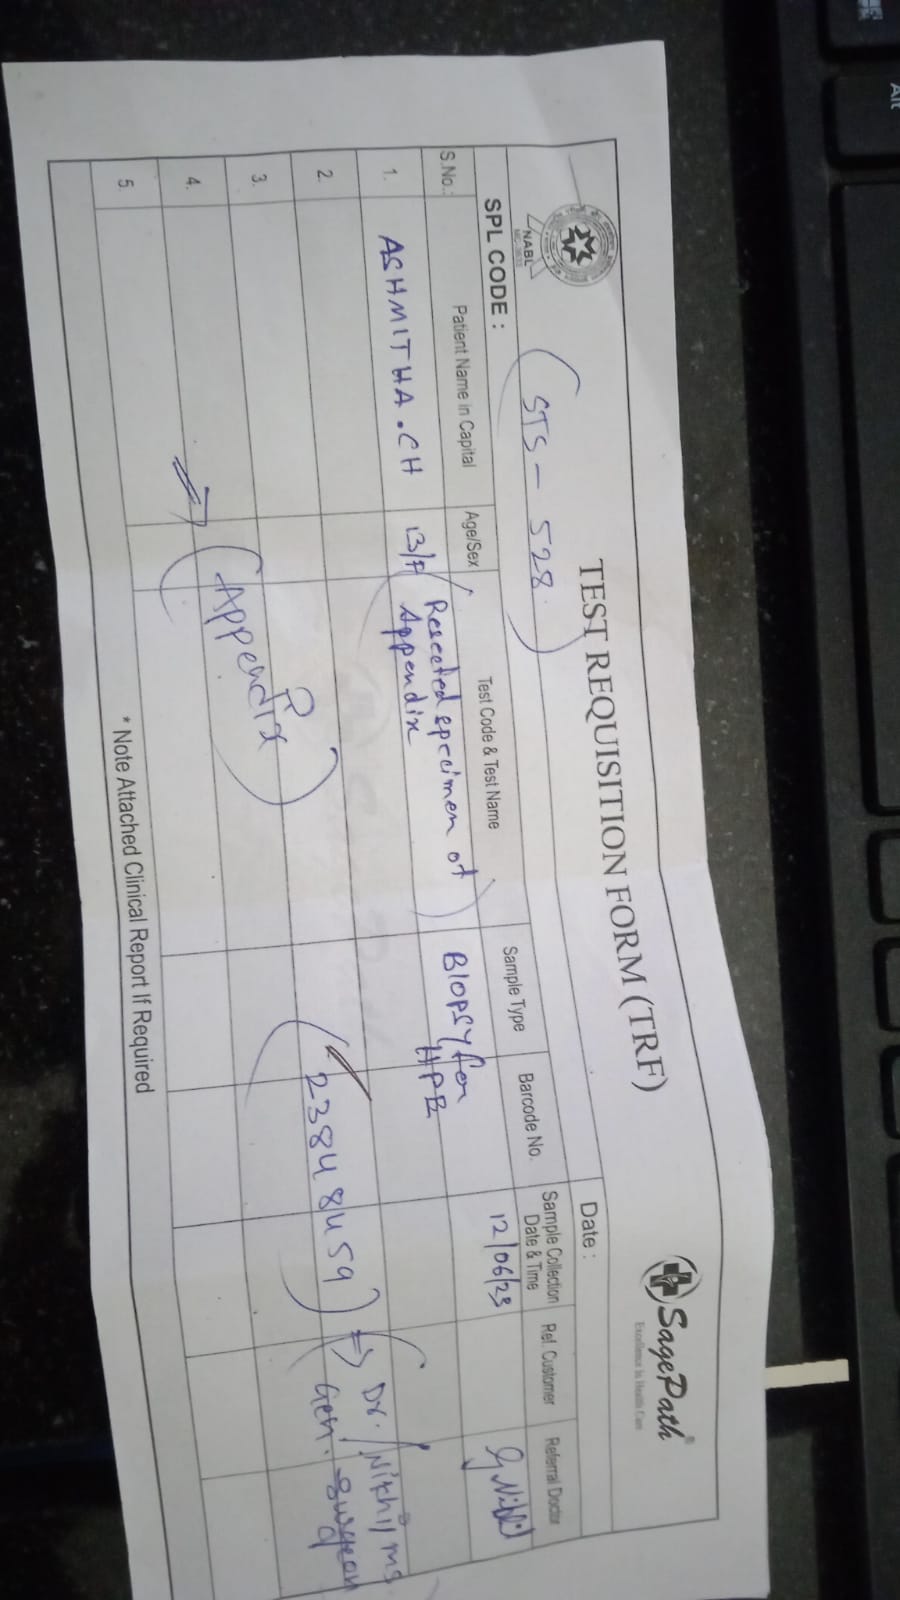 SagePath®
Excellence in Health Care
TEST REQUISITION FORM (TRF)
NABL
Date :
SPL CODE :
(STS - 528)
S.No.: Patient Name in Capital Age/Sex Test Code & Test Name Sample Type Barcode No. Sample Collection Date & Time Ref. Customer Referral Doctor
1. ASHMITHA.CH 13/F (Resected specimen of Appendix) Biopsy for HPE 12/06/23
2. (23848459) ⇒ Dr. Nikhil ms
Gen. Surgeon
3. (Appendix)
4.
5.
* Note Attached Clinical Report If Required
Alt